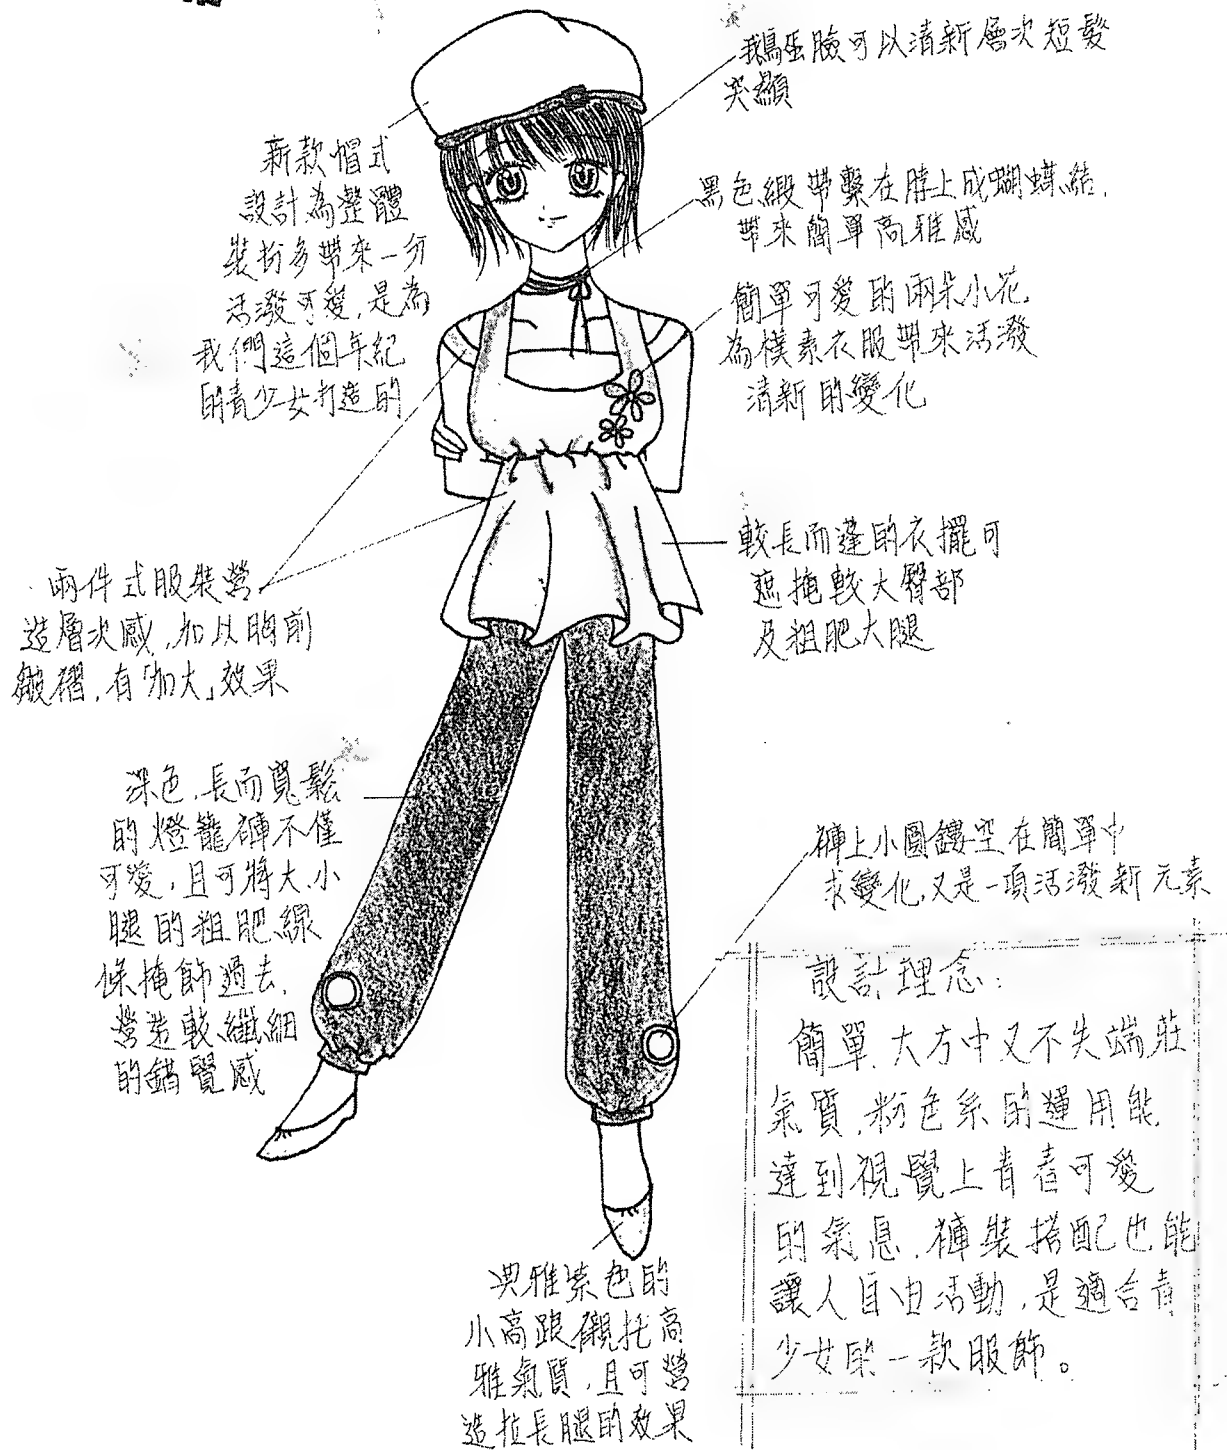 鵝蛋臉可以清新層次短髮
突顯
新款帽式
設計為整體
裝扮多帶來一分
活潑可愛,是為
我們這個年紀
的青少女打造的
黑色緞帶繫在脖上成蝴蝶結,
帶來簡單高雅感
簡單可愛的兩朵小花,
為樸素衣服帶來活潑
清新的變化
較長而蓬的衣擺可
遮掩較大臀部
及粗肥大腿
兩件式服裝營
造層次感,加以胸前
皺褶,有「加大」效果
深色,長而寬鬆
的燈籠褲不僅
可愛,且可將大、小
腿的粗肥線
條掩飾過去,
營造較纖細
的錯覺感
褲上小圓鏤空在簡單中
求變化,又是一項活潑新元素
典雅紫色的
小高跟襯托高
雅氣質,且可營
造拉長腿的效果
設計理念:
簡單、大方中又不失端莊
氣質,粉色系的運用能
達到視覺上青春可愛
的氣息,褲裝搭配也能
讓人自由活動,是適合青
少女的一款服飾。